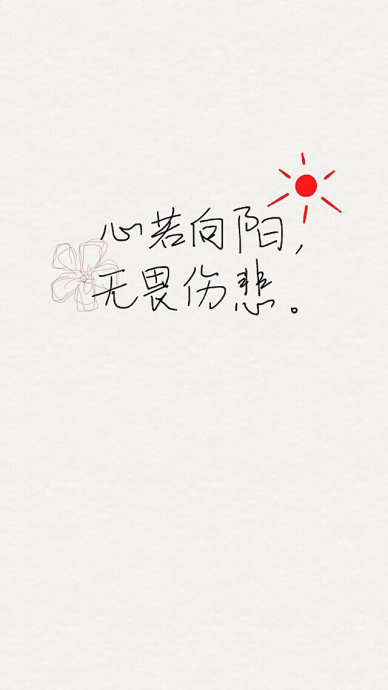 心若向阳，
无畏伤悲。